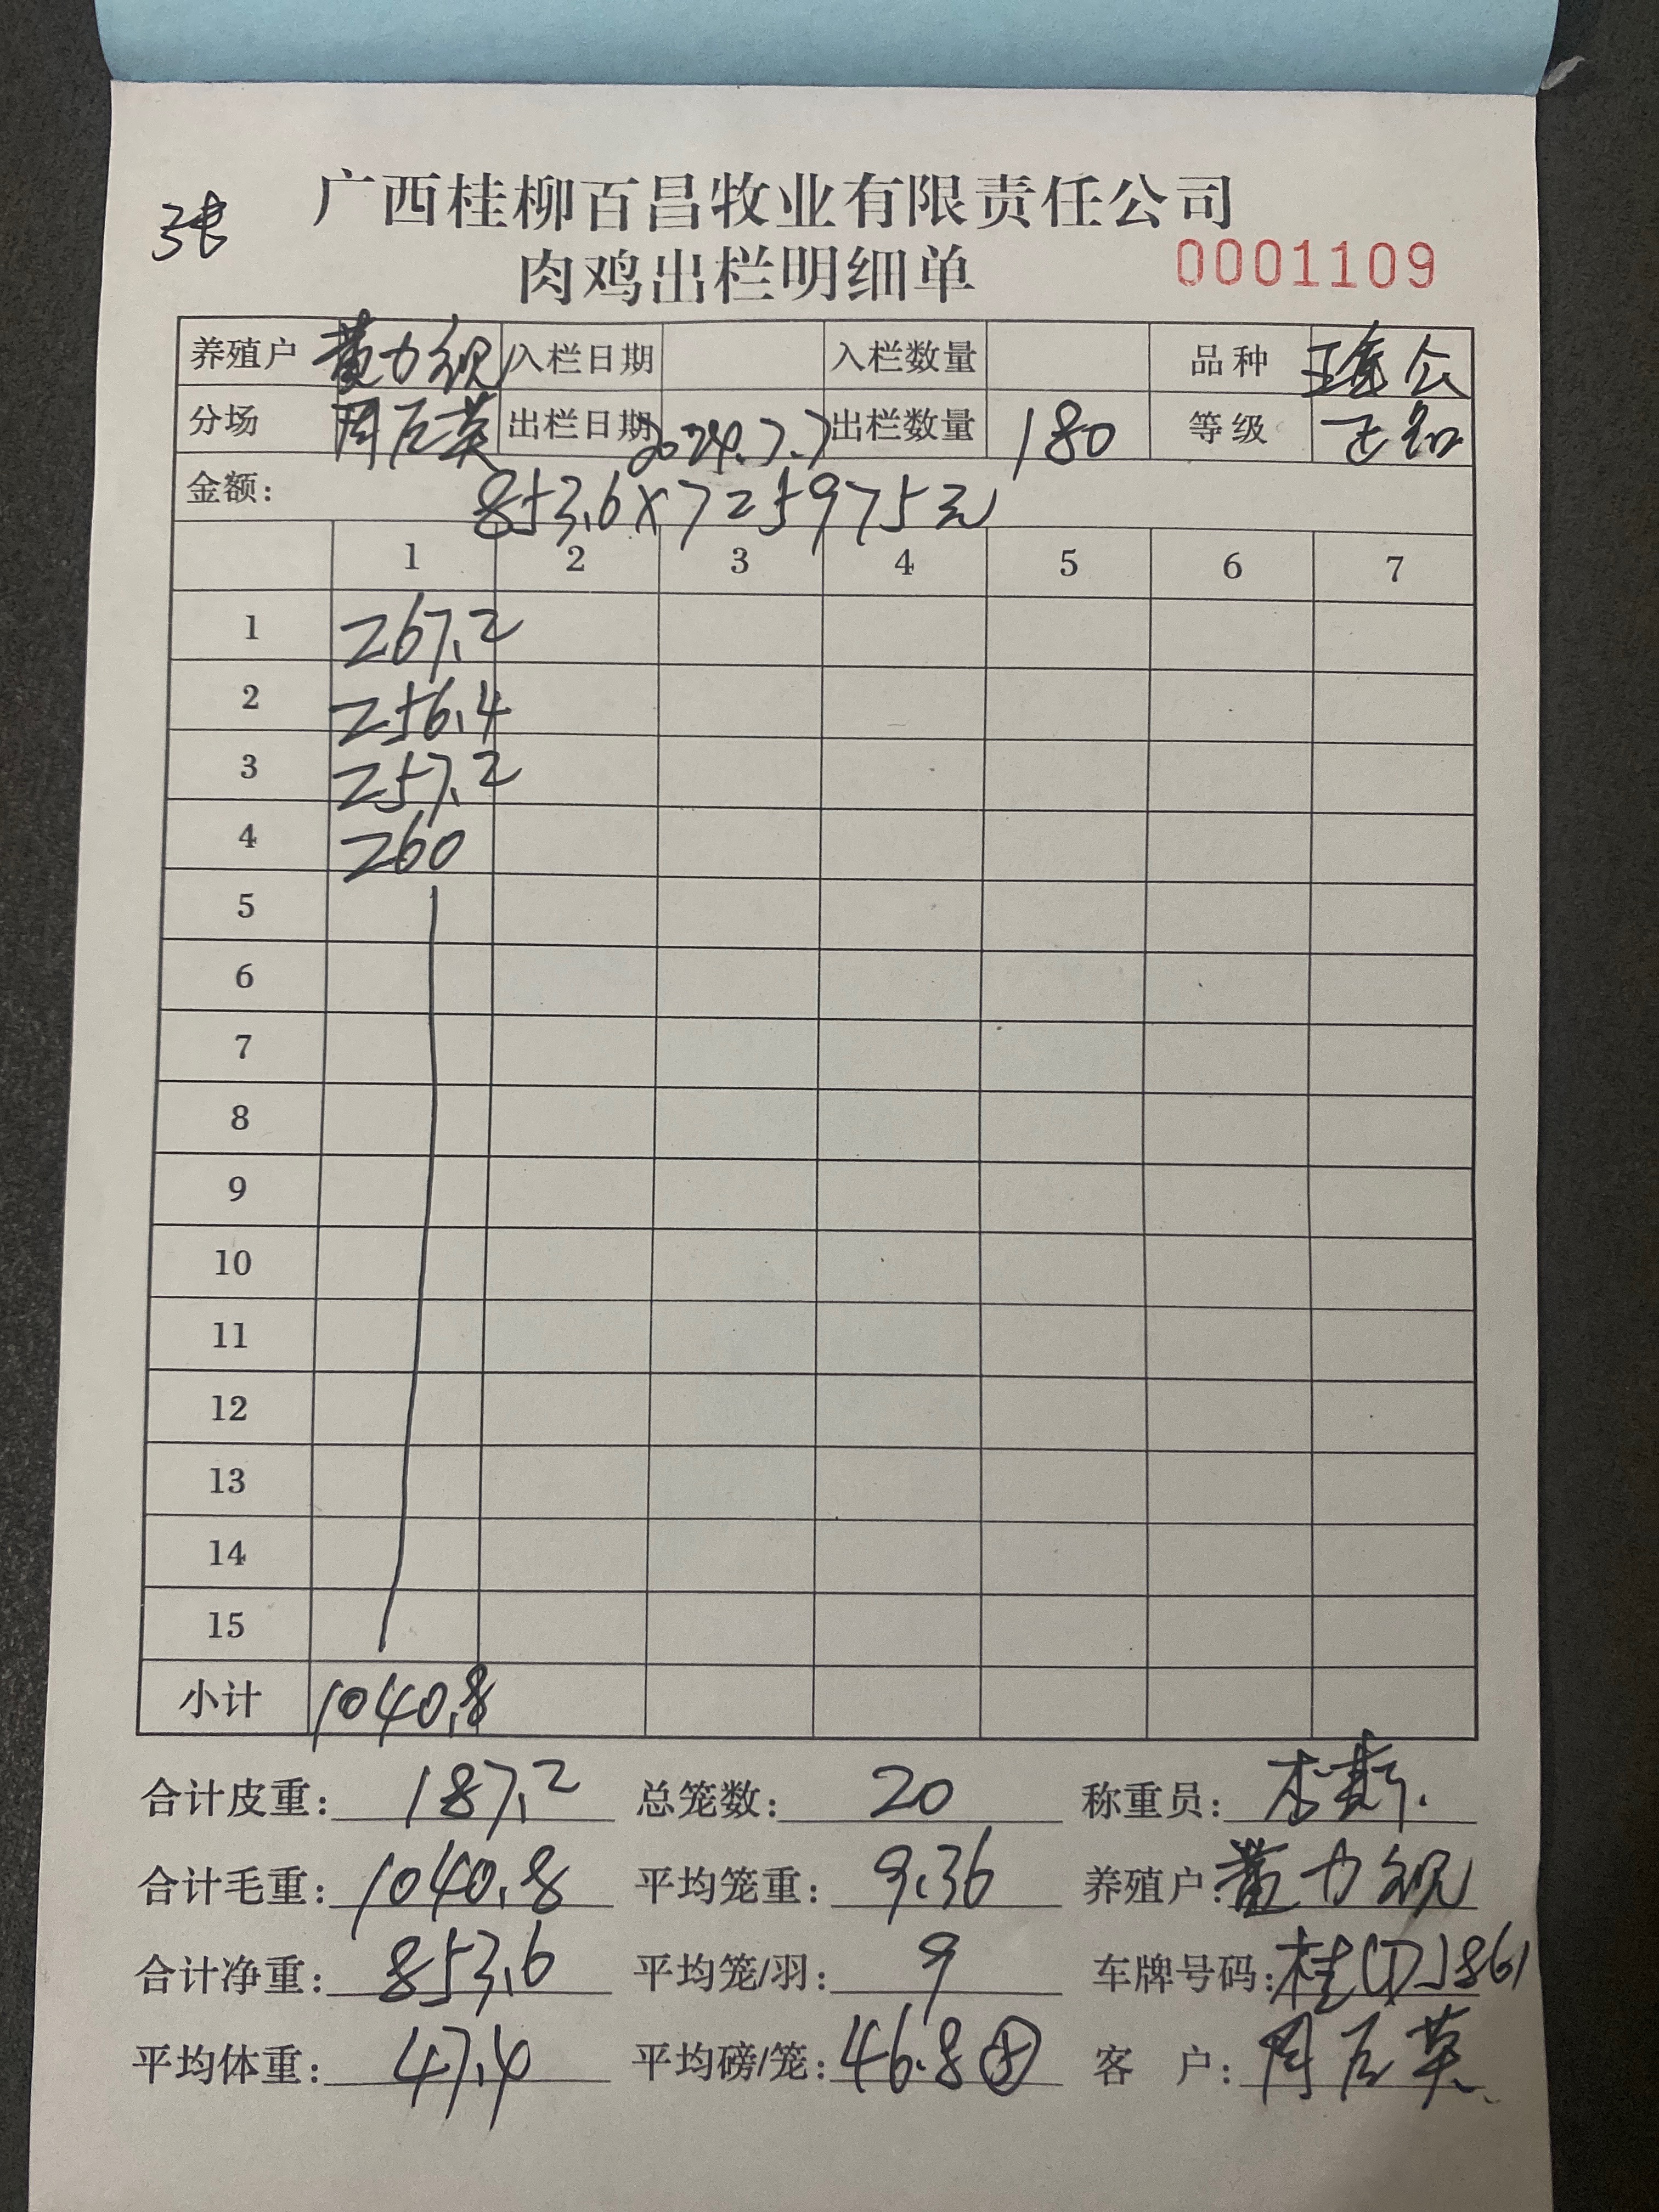 广西桂柳百昌牧业有限责任公司
肉鸡出栏明细单
0001109
养殖户 黄力 入栏日期 入栏数量 品种
分场 周石英 出栏日期 2024.7.7 出栏数量 180 等级
金额: 853.6×7=5975元
1 2 3 4 5 6 7
1 267.2
2 256.4
3 257.2
4 260
5
6
7
8
9
10
11
12
13
14
15
小计 1040.8
合计皮重: 187.2 总笼数: 20 称重员: 李
合计毛重: 1040.8 平均笼重: 9.36 养殖户: 黄力
合计净重: 853.6 平均笼/羽: 9 车牌号码: 桂 J861
平均体重: 47.4 平均磅/笼: 46.8 客 户: 周石英